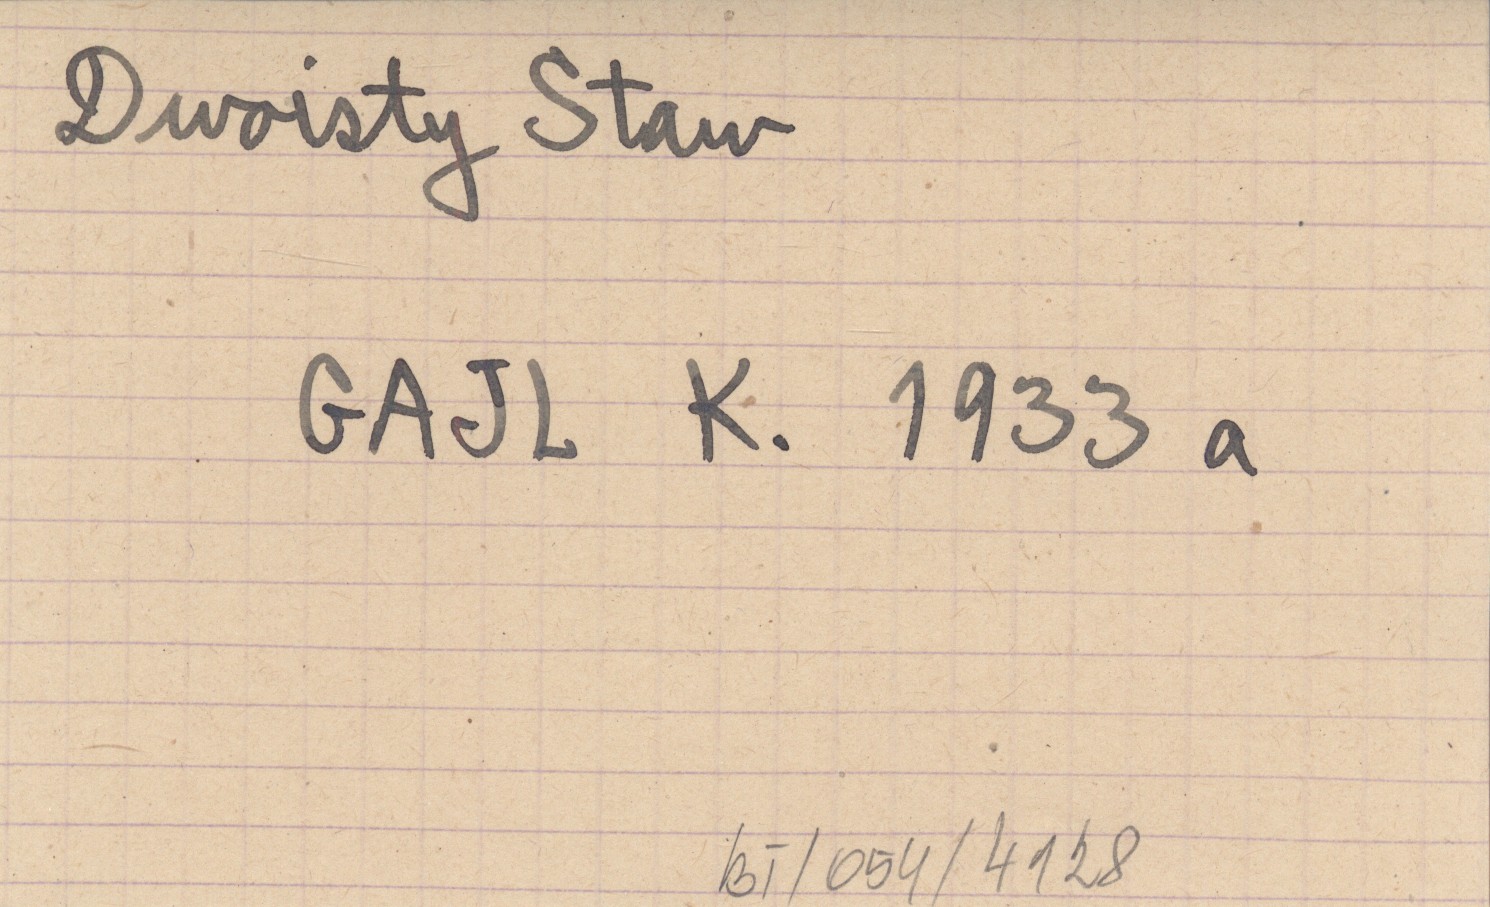 Dwoisty Staw
GAJL K. 1933 a
BT/054/4128